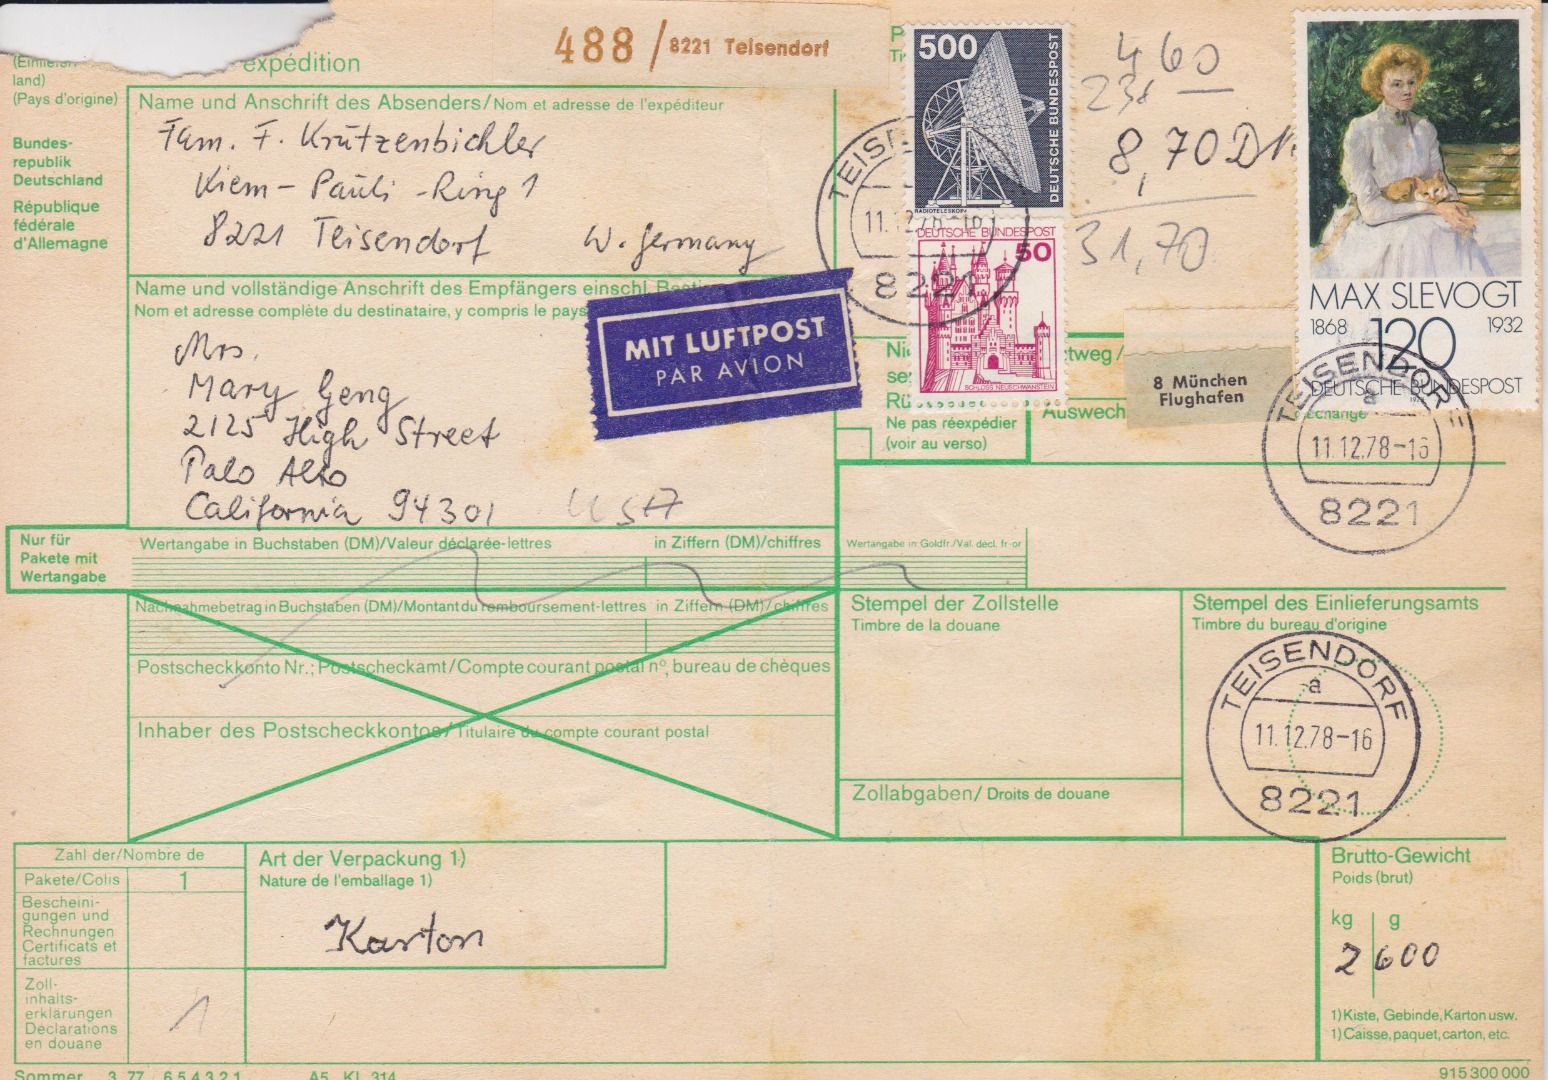 488 / 8221 Teisendorf
(Einliefer-
land)
(Pays d'origine)
expédition
Bundes-
republik
Deutschland
République
fédérale
d'Allemagne
Name und Anschrift des Absenders/Nom et adresse de l'expéditeur
Fam. F. Krutzenbichler
Kiem-Pauli-Ring 1
8221 Teisendorf W. Germany
Name und vollständige Anschrift des Empfängers einschl.
Nom et adresse complète du destinataire, y compris le pays
Mrs.
Mary Geng
2125 High Street
Palo Alto
California 94301 USA
MIT LUFTPOST
PAR AVION
500
DEUTSCHE BUNDESPOST
RADIOTELESKOP
DEUTSCHE BUNDESPOST
50
SCHLOSS NEUSCHWANSTEIN
TEISENDORF
11.12.78-16
8221
4 60
8,70 DM
31,70
MAX SLEVOGT
1868 120 1932
DEUTSCHE BUNDESPOST
TEISENDORF
a
11.12.78-16
8221
8 München
Flughafen
Ne pas réexpédier
(voir au verso)
Nur für
Pakete mit
Wertangabe
Wertangabe in Buchstaben (DM)/Valeur déclarée-lettres in Ziffern (DM)/chiffres
Wertangabe in Goldfr./Val. décl. fr-or
Nachnahmebetrag in Buchstaben (DM)/Montant du remboursement-lettres in Ziffern (DM)/chiffres
Postscheckkonto Nr.; Postscheckamt/Compte courant postal n°, bureau de chèques
Inhaber des Postscheckkontos/Titulaire du compte courant postal
Stempel der Zollstelle
Timbre de la douane
Zollabgaben/Droits de douane
Stempel des Einlieferungsamts
Timbre du bureau d'origine
TEISENDORF
a
11.12.78-16
8221
Zahl der/Nombre de
Pakete/Colis 1
Bescheini-
gungen und
Rechnungen
Certificats et
factures
Zoll-
inhalts-
erklärungen
Déclarations
en douane
1
Art der Verpackung 1)
Nature de l'emballage 1)
Karton
Brutto-Gewicht
Poids (brut)
kg g
2 600
1) Kiste, Gebinde, Karton usw.
1) Caisse, paquet, carton, etc.
Sommer 3 77 6 5 4 3 2 1 A5, Kl. 314
915 300 000